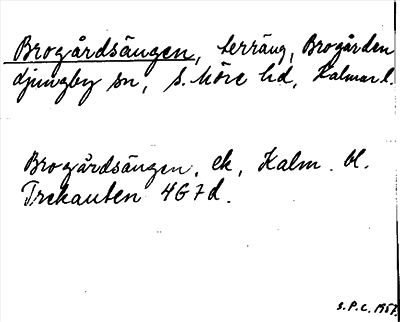 Brogårdsängen, terräng, Brogården
Ljungby sn, S. Möre hd, Kalmar l.
Brogårdsängen, ek, Kalm. bl.
Trekanten 4G7d.
S.P.C. 1957.